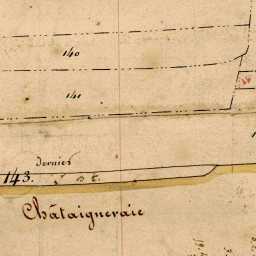 140
141
dernier
143.
Châtaigneraie